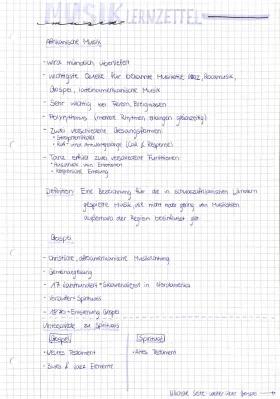 MUSIK LERNZETTEL
Afrikanische Musik
- wird mündlich überliefert
- wichtigste Quelle für bekannte Musikstile: Jazz, Rockmusik,
Gospel, lateinamerikanische Musik
- Sehr wichtig bei Feiern, Ereignissen
- Polyrhythmik (mehrere Rhythmen erklingen gleichzeitig)
- Zwei verschiedene Gesangsformen:
• Ruf- und Antwortgesänge (Call & Response)
- Tanz erfüllt zwei verschiedene Funktionen:
• Ausdruck von Emotionen
• Körperliche
Definition: Eine Bezeichnung für die in schwarzafrikanischen Ländern
gespielte Musik, die nicht oder gering von Musikstilen
außerhalb der Region beeinflusst ist
Gospel
- Christliche, afroamerikanische Musikrichtung
- 17. Jahrhundert: Sklavendienst in Nordamerika
- Vorläufer: Spirituals
- Entstehung Gospel
Unterschiede zu Spirituals
Gospel Spiritual
- Neues Testament - Altes Testament
- Blues & Jazz Elemente
Nächste Seite weiter über Gospel